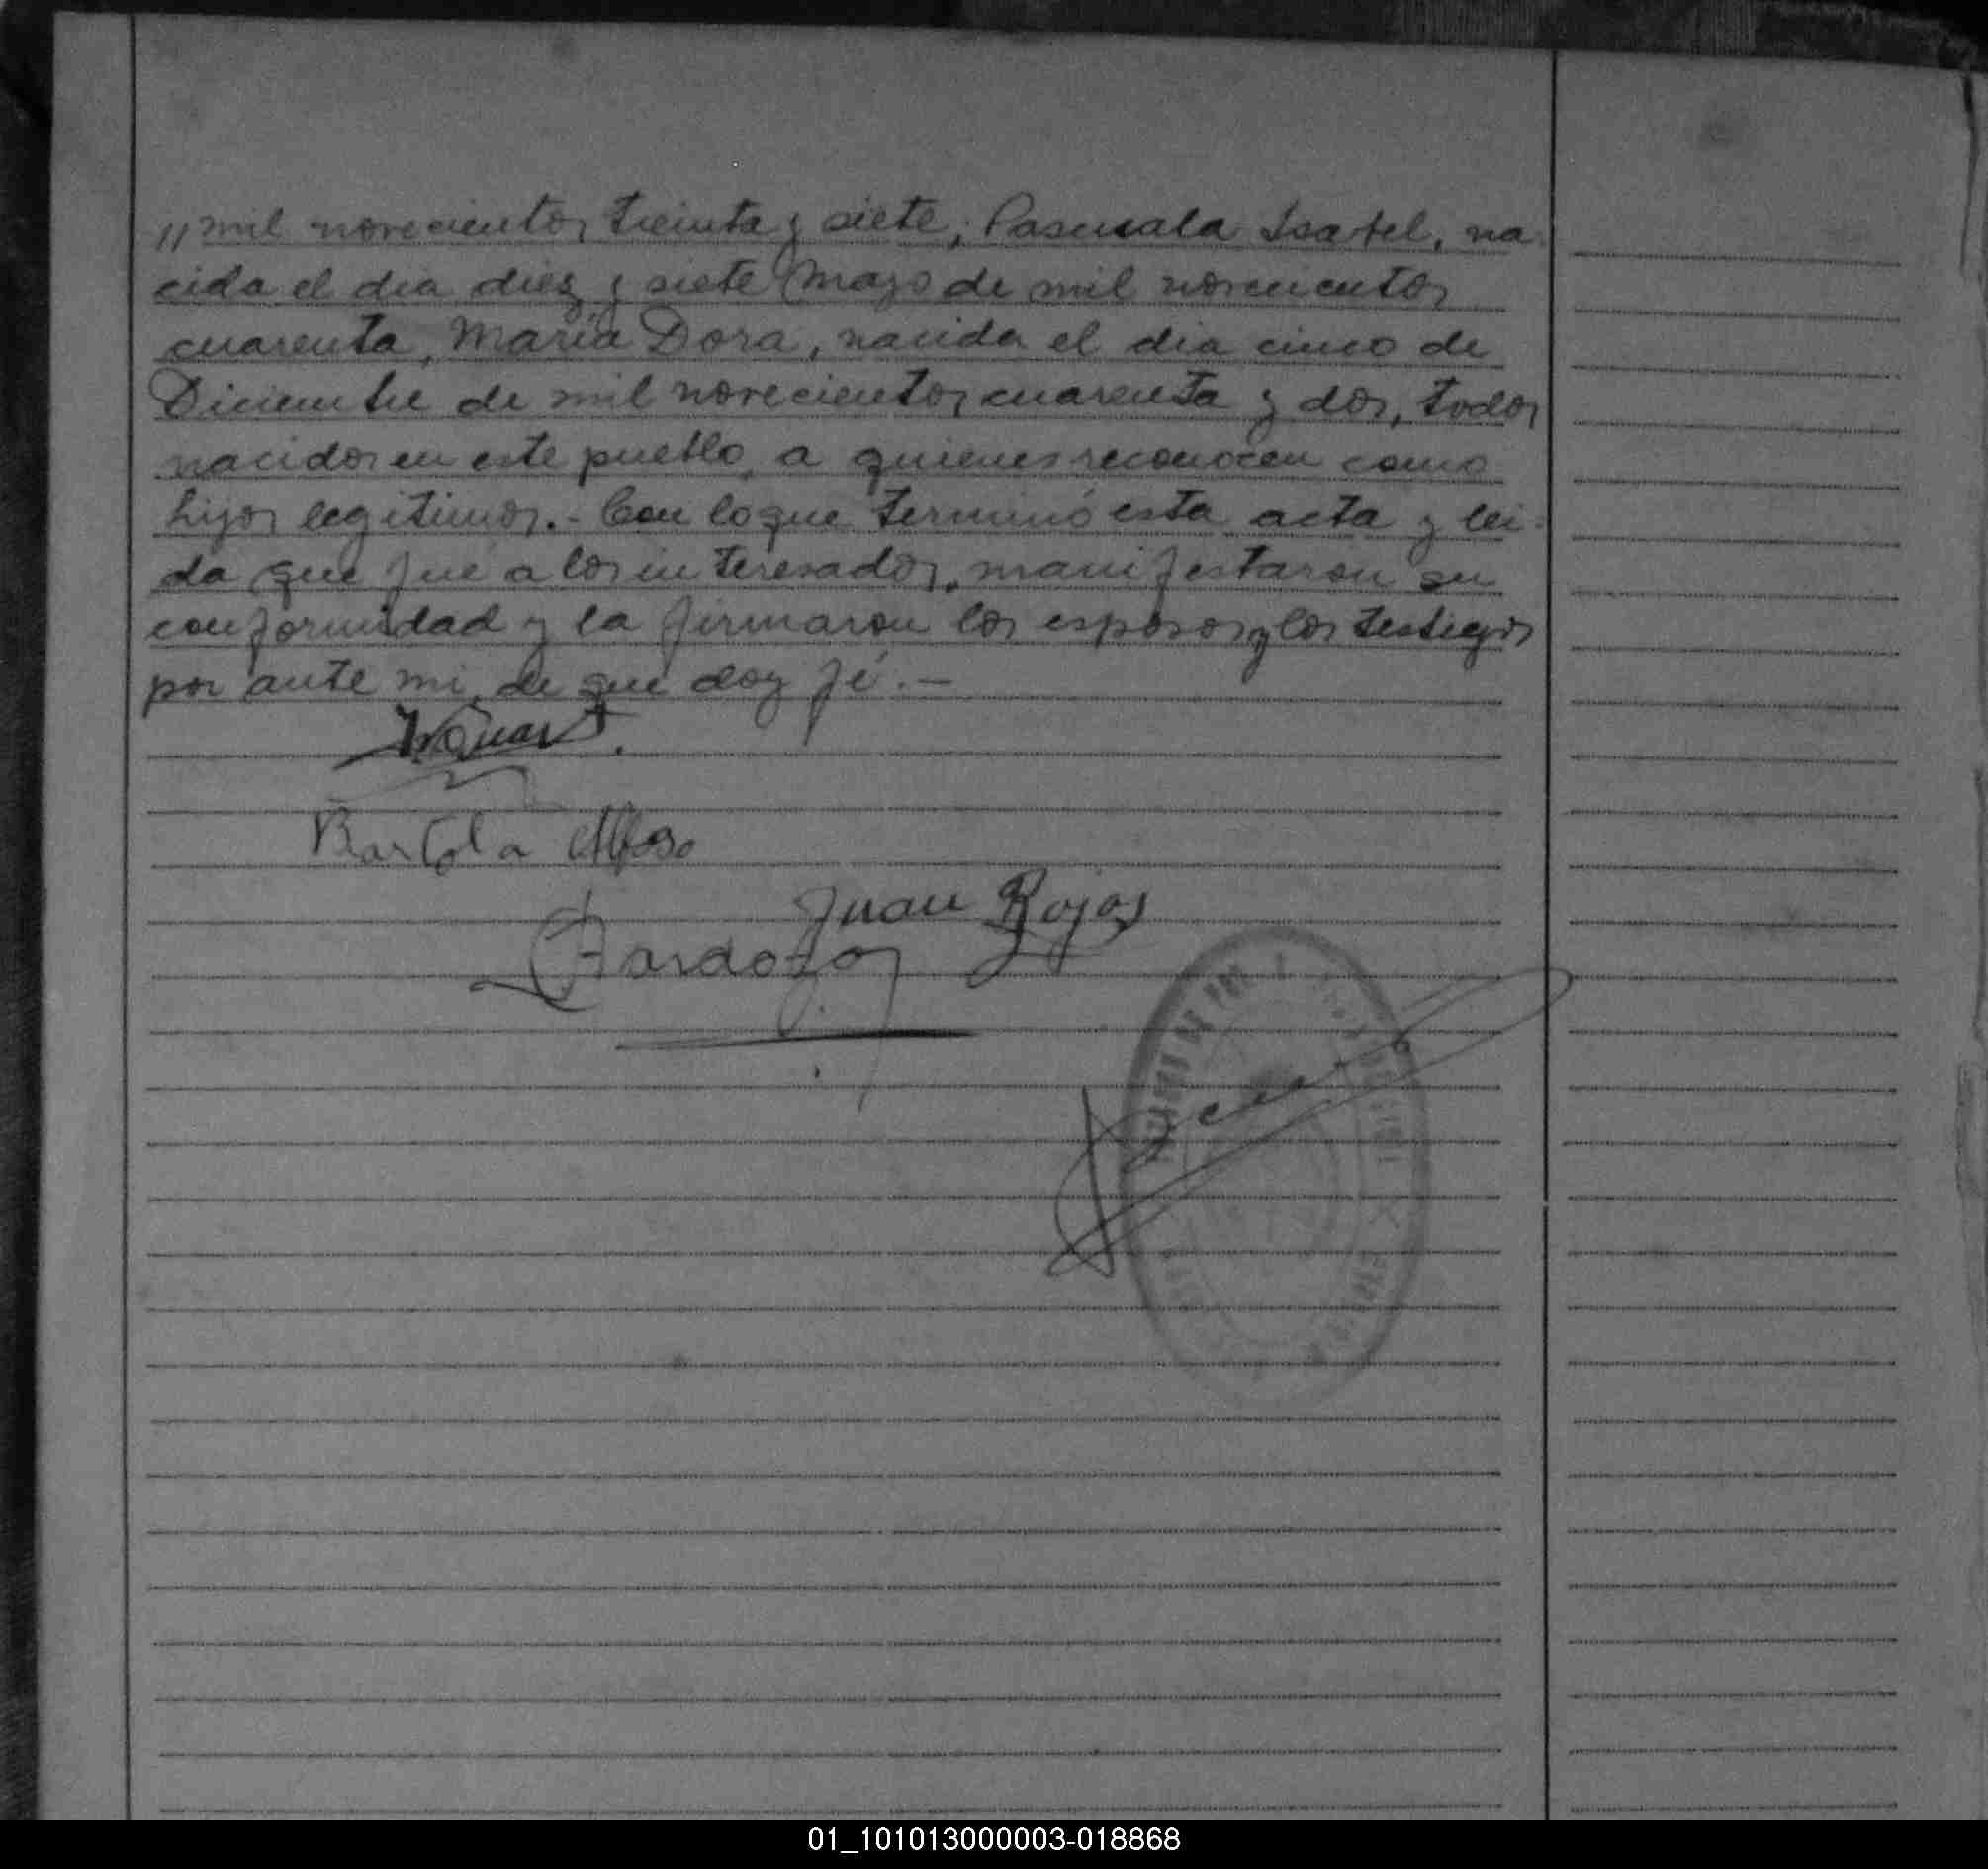 " mil novecientos treinta y siete, Pascuala Isabel, na-
cida el dia diez y siete Mayo de mil novecientos
cuarenta, María Dora, nacida el dia cinco de
Diciembre de mil novecientos cuarenta y dos, todos
nacidos en este pueblo, a quienes reconocen como
hijos legitimos.- Con lo que terminó esta acta y lei-
da que fué a los interesados, manifestaron su
conformidad y la firmaron los esposos y los testigos
por ante mi, de que doy fé.-
Bartola
Juan Rojas
01_101013000003-018868